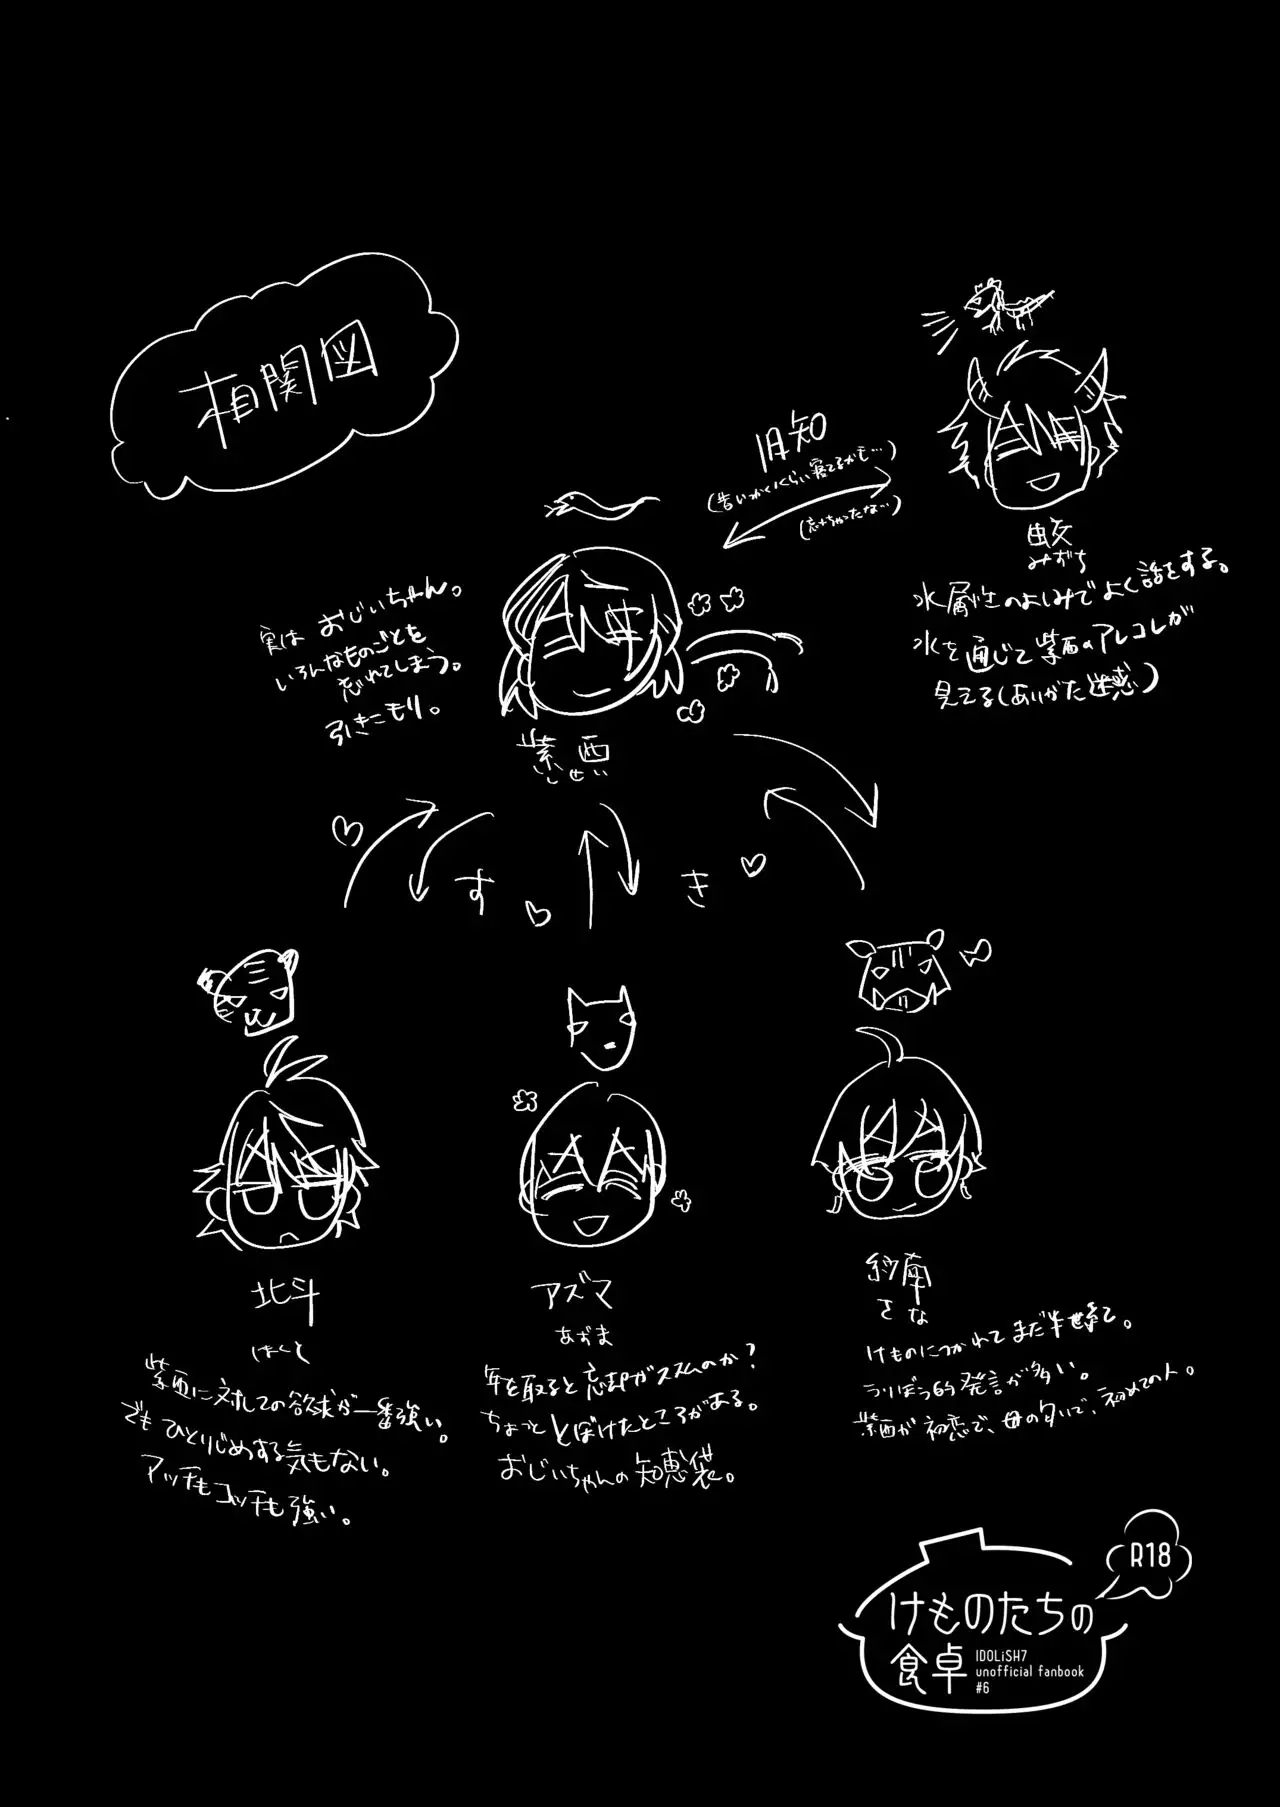 相関図
旧知
(昔いっかくらい寝てるかも…)
(忘れちゃったな…)
蛟
みずち
水属性のよしみでよく話をする。
水を通じて紫西のアレコレが
見てる(ありがた迷惑)
実は おじいちゃん。
いろんなものごとを
忘れてしまう。
引きこもり。
紫西
しせい
す
き
北斗
ほくと
紫西に対しての欲求が一番強い。
でもひとりじめする気もない。
アッチもコッチも強い。
アズマ
あずま
年を取ると忘却がススムのか?
ちょっととぼけたところがある。
おじいちゃんの知恵袋。
紗南
さな
けものにつかれてまだ半世紀。
うりぼう的発言が多い。
紫西が初恋で、母の匂いで、初めての人。
R18
けものたちの
食卓
IDOLiSH7
unofficial fanbook
#6